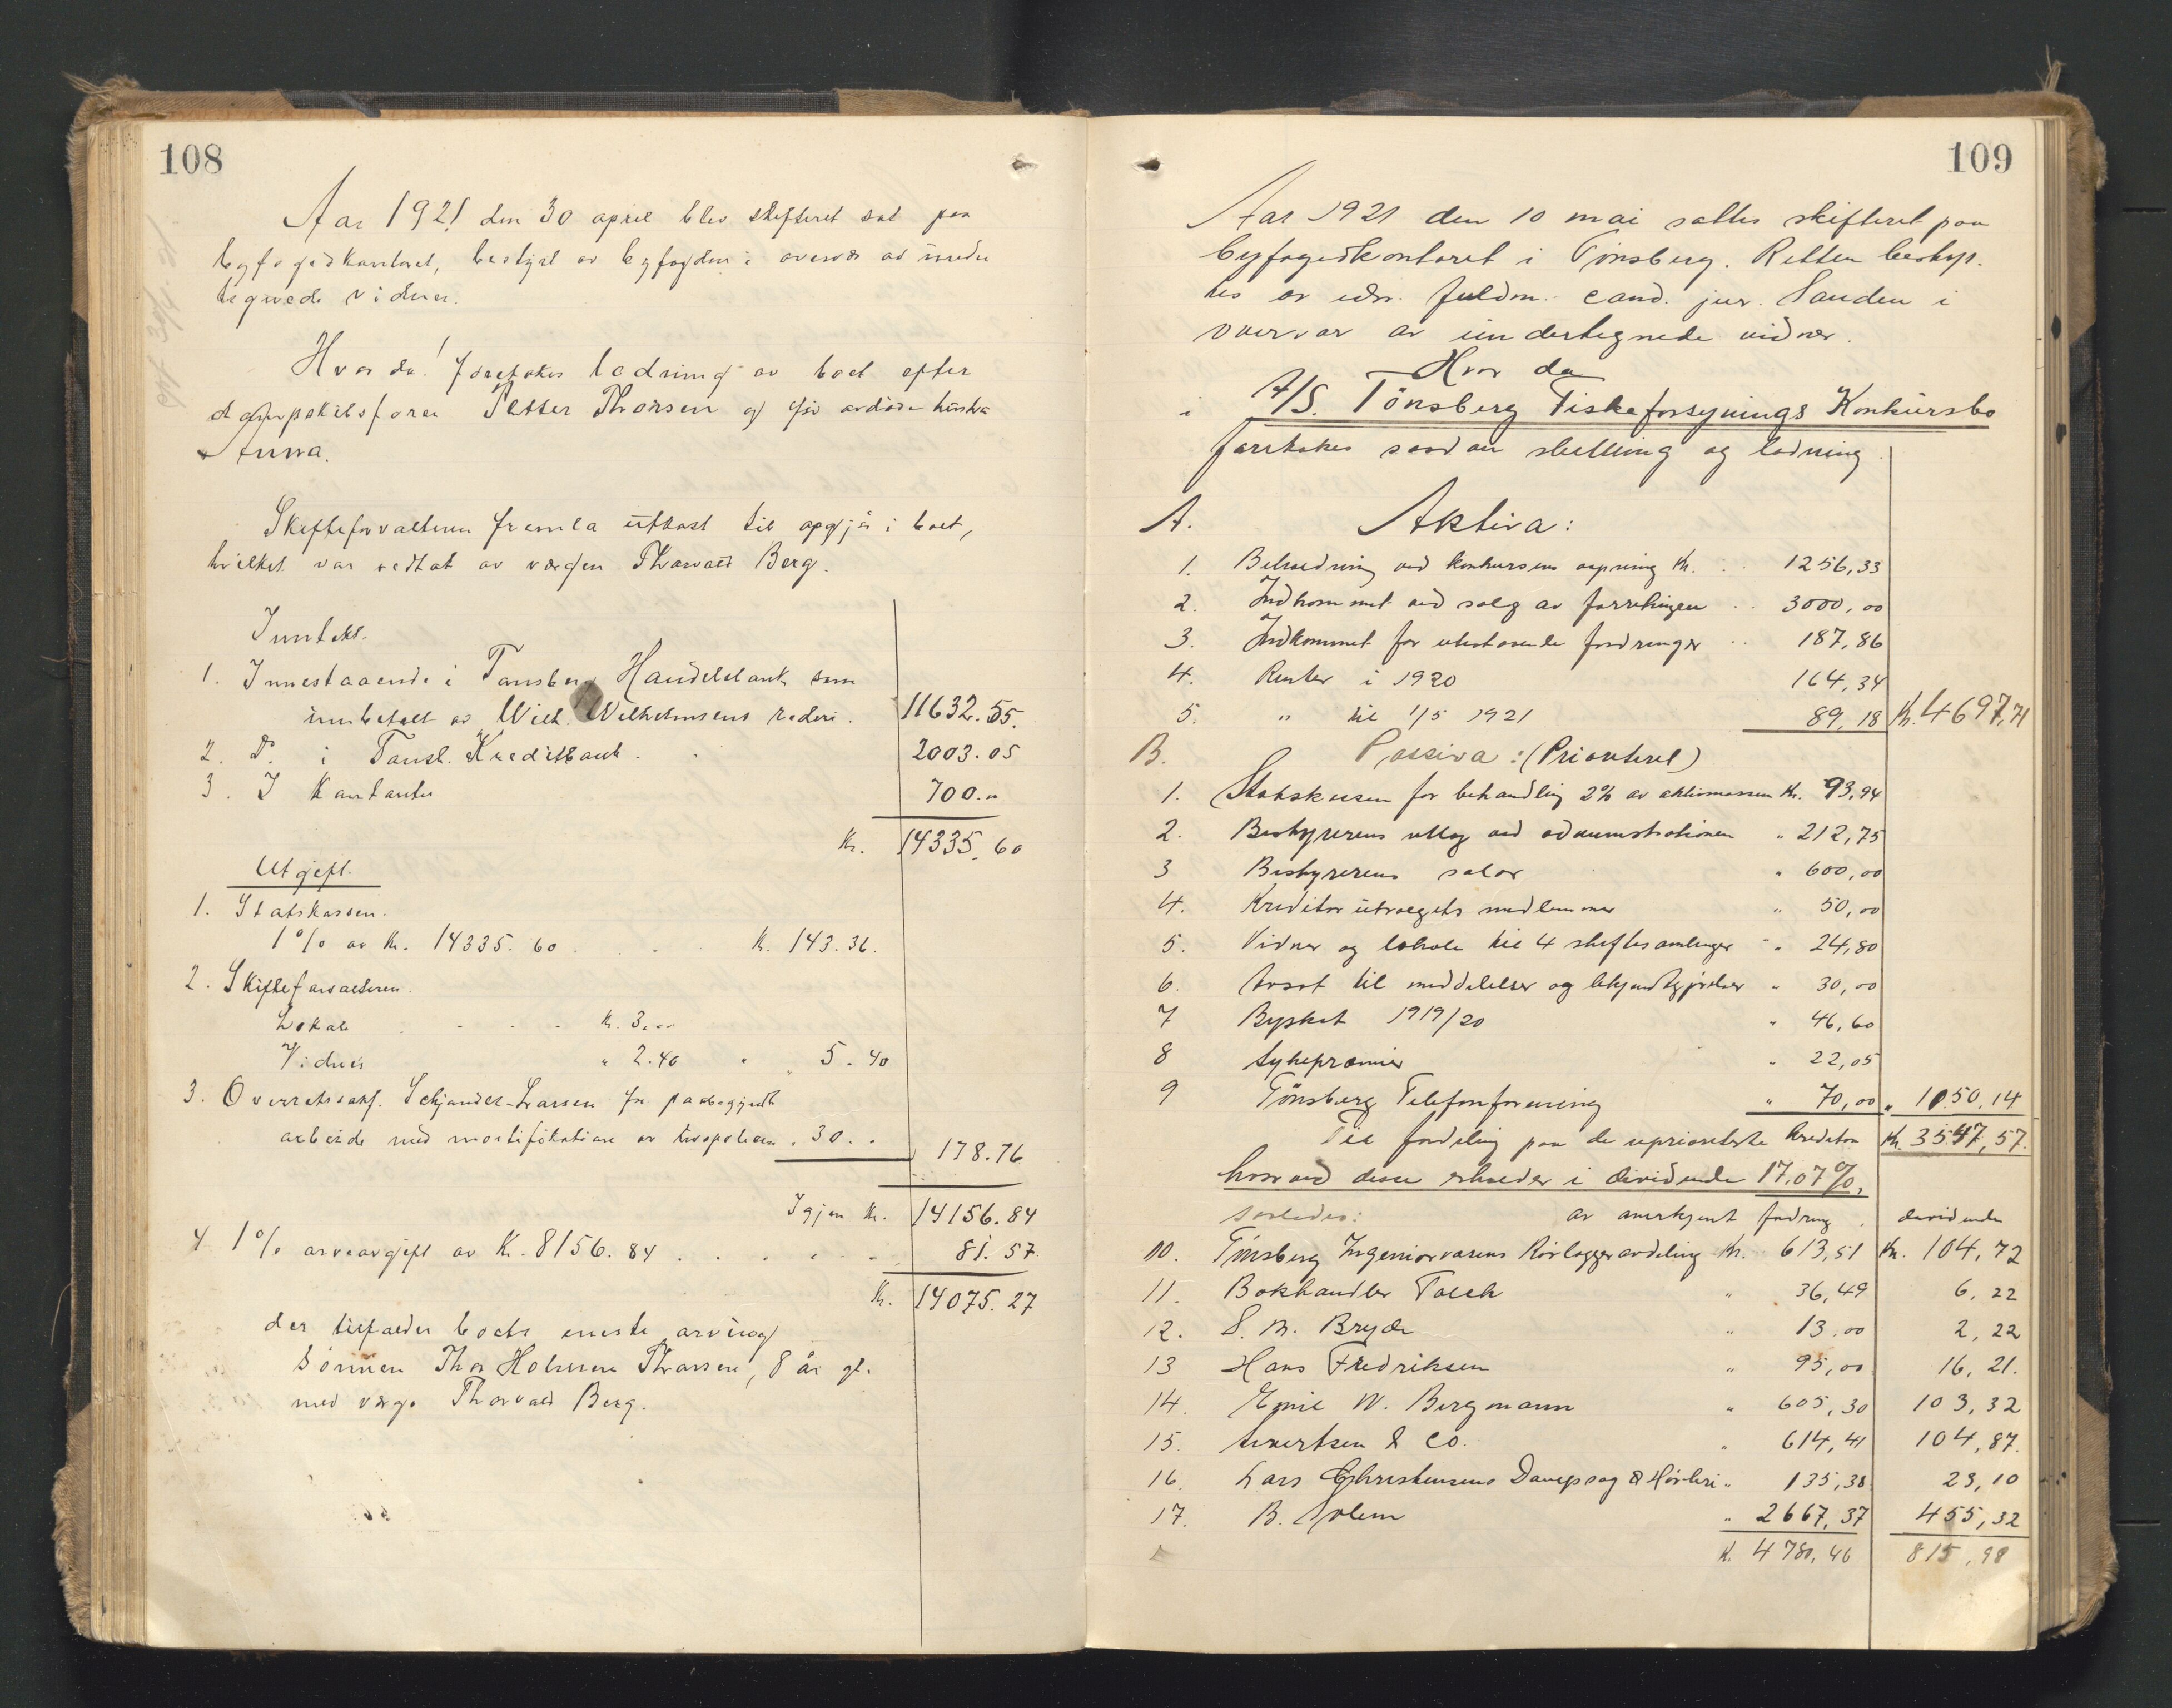 108
Aar 1921 den 30 april blev skifteret sat paa
byfogedkontoret, bestyret av byfogden i overvær av under
tegnede vidner.
Hvor da! foretokes lodning av boet efter
dampskibsfører Petter Thorsen og før avdøde hustru
Anna.
Skifteforvalteren fremla utkast til opgjør i boet,
hvilket var vedtat av værgen Thorvald Berg.
Inntekt.
1. Innestaaende i Tønsberg Handelsbank som
innbetalt av Wilh. Wilhelmsens rederi. 11632.55.
2. Do. i Tønsb. Kreditbank . . 2003.05
3. I Kontanter 700.-
Kr. 14335.60
Utgift.
1. Statskassen.
1% av Kr. 14335.60 . . . K. 143.36.
2. Skifteforvalteren.
Lokale . . . . Kr. 3.--
Vidner " 2.40 " 5.40
3. Overretssakf. Schjander-Larsen for paabegyndt
arbeide med mortifikation av livspolicen " 30. - 178.76
Igjen Kr. 14156.84
4 1% arveavgift av Kr. 8156.84 . . . . . 81.57
Kr. 14075.27
der tilfalder boets eneste arving
sönnen Thor Holmen Thorsen, 8 år gl.
med værge Thorvald Berg.
109
Aar 1921 den 10 mai sattes skifteret paa
byfogedkontoret i Tönsberg. Retten bestyr-
tes av edsv. fuldm. cand. jur. Sanden i
overvær av undertegnede vidner.
Hvor da
i A/S. Tönsberg Fiskeforsynings Konkursbo
foretokes saadan stelling og lodning.
A. Aktiva:
1. Beholdning ved konkursens aapning Kr. . . 1256,33
2. Indkommet ved salg av forretningen . . 3000,00
3. Indkommet for utestaaende fordringer . . 187,86
4. Renter i 1920 164,34
5. " til 1/5 1921 89,18 Kr. 4697,71
B. Passiva: (Prioritert)
1. Statskassen for behandling 2% av aktivmassen Kr. 93,94
2. Bestyrerens utlæg ved administrationen " 212,75
3 Bestyrerens salær " 600,00
4. Kreditorutvalgets medlemmer " 50,00
5. Vidner og lokale til 4 skiftesamlinger " 24,80
6. Avsat til meddelelser og bekjendtgjörelser " 30,00
7 Byskat 1919/20 " 46,60
8 Sykepræmier " 22,05
9 Tönsberg Telefonforening " 70,00 " 1050,14
Til fordeling paa de uprioriterte kreditorer Kr. 3547,57.
hvorved disse erholder i dividende 17.07%,
saaledes: av anerkjent fordring. dividende
10. Tönsberg Ingeniørvæsens Rörlæggeravdeling Kr. 613,51 Kr. 104,72
11. Bokhandler Falch " 36,49 6,22
12. S. M. Bryde " 13,00 2,22
13 Hans Fredriksen " 95,00 16,21.
14. Emil W. Bergmann " 605,30 103,32
15. Sivertsen & Co. " 614,41 104,87.
16. Lars Christensens Dampsag & Hövleri " 135,38 23,10
17. B. Solem " 2667,37 455,32
K. 4780,46 815,98